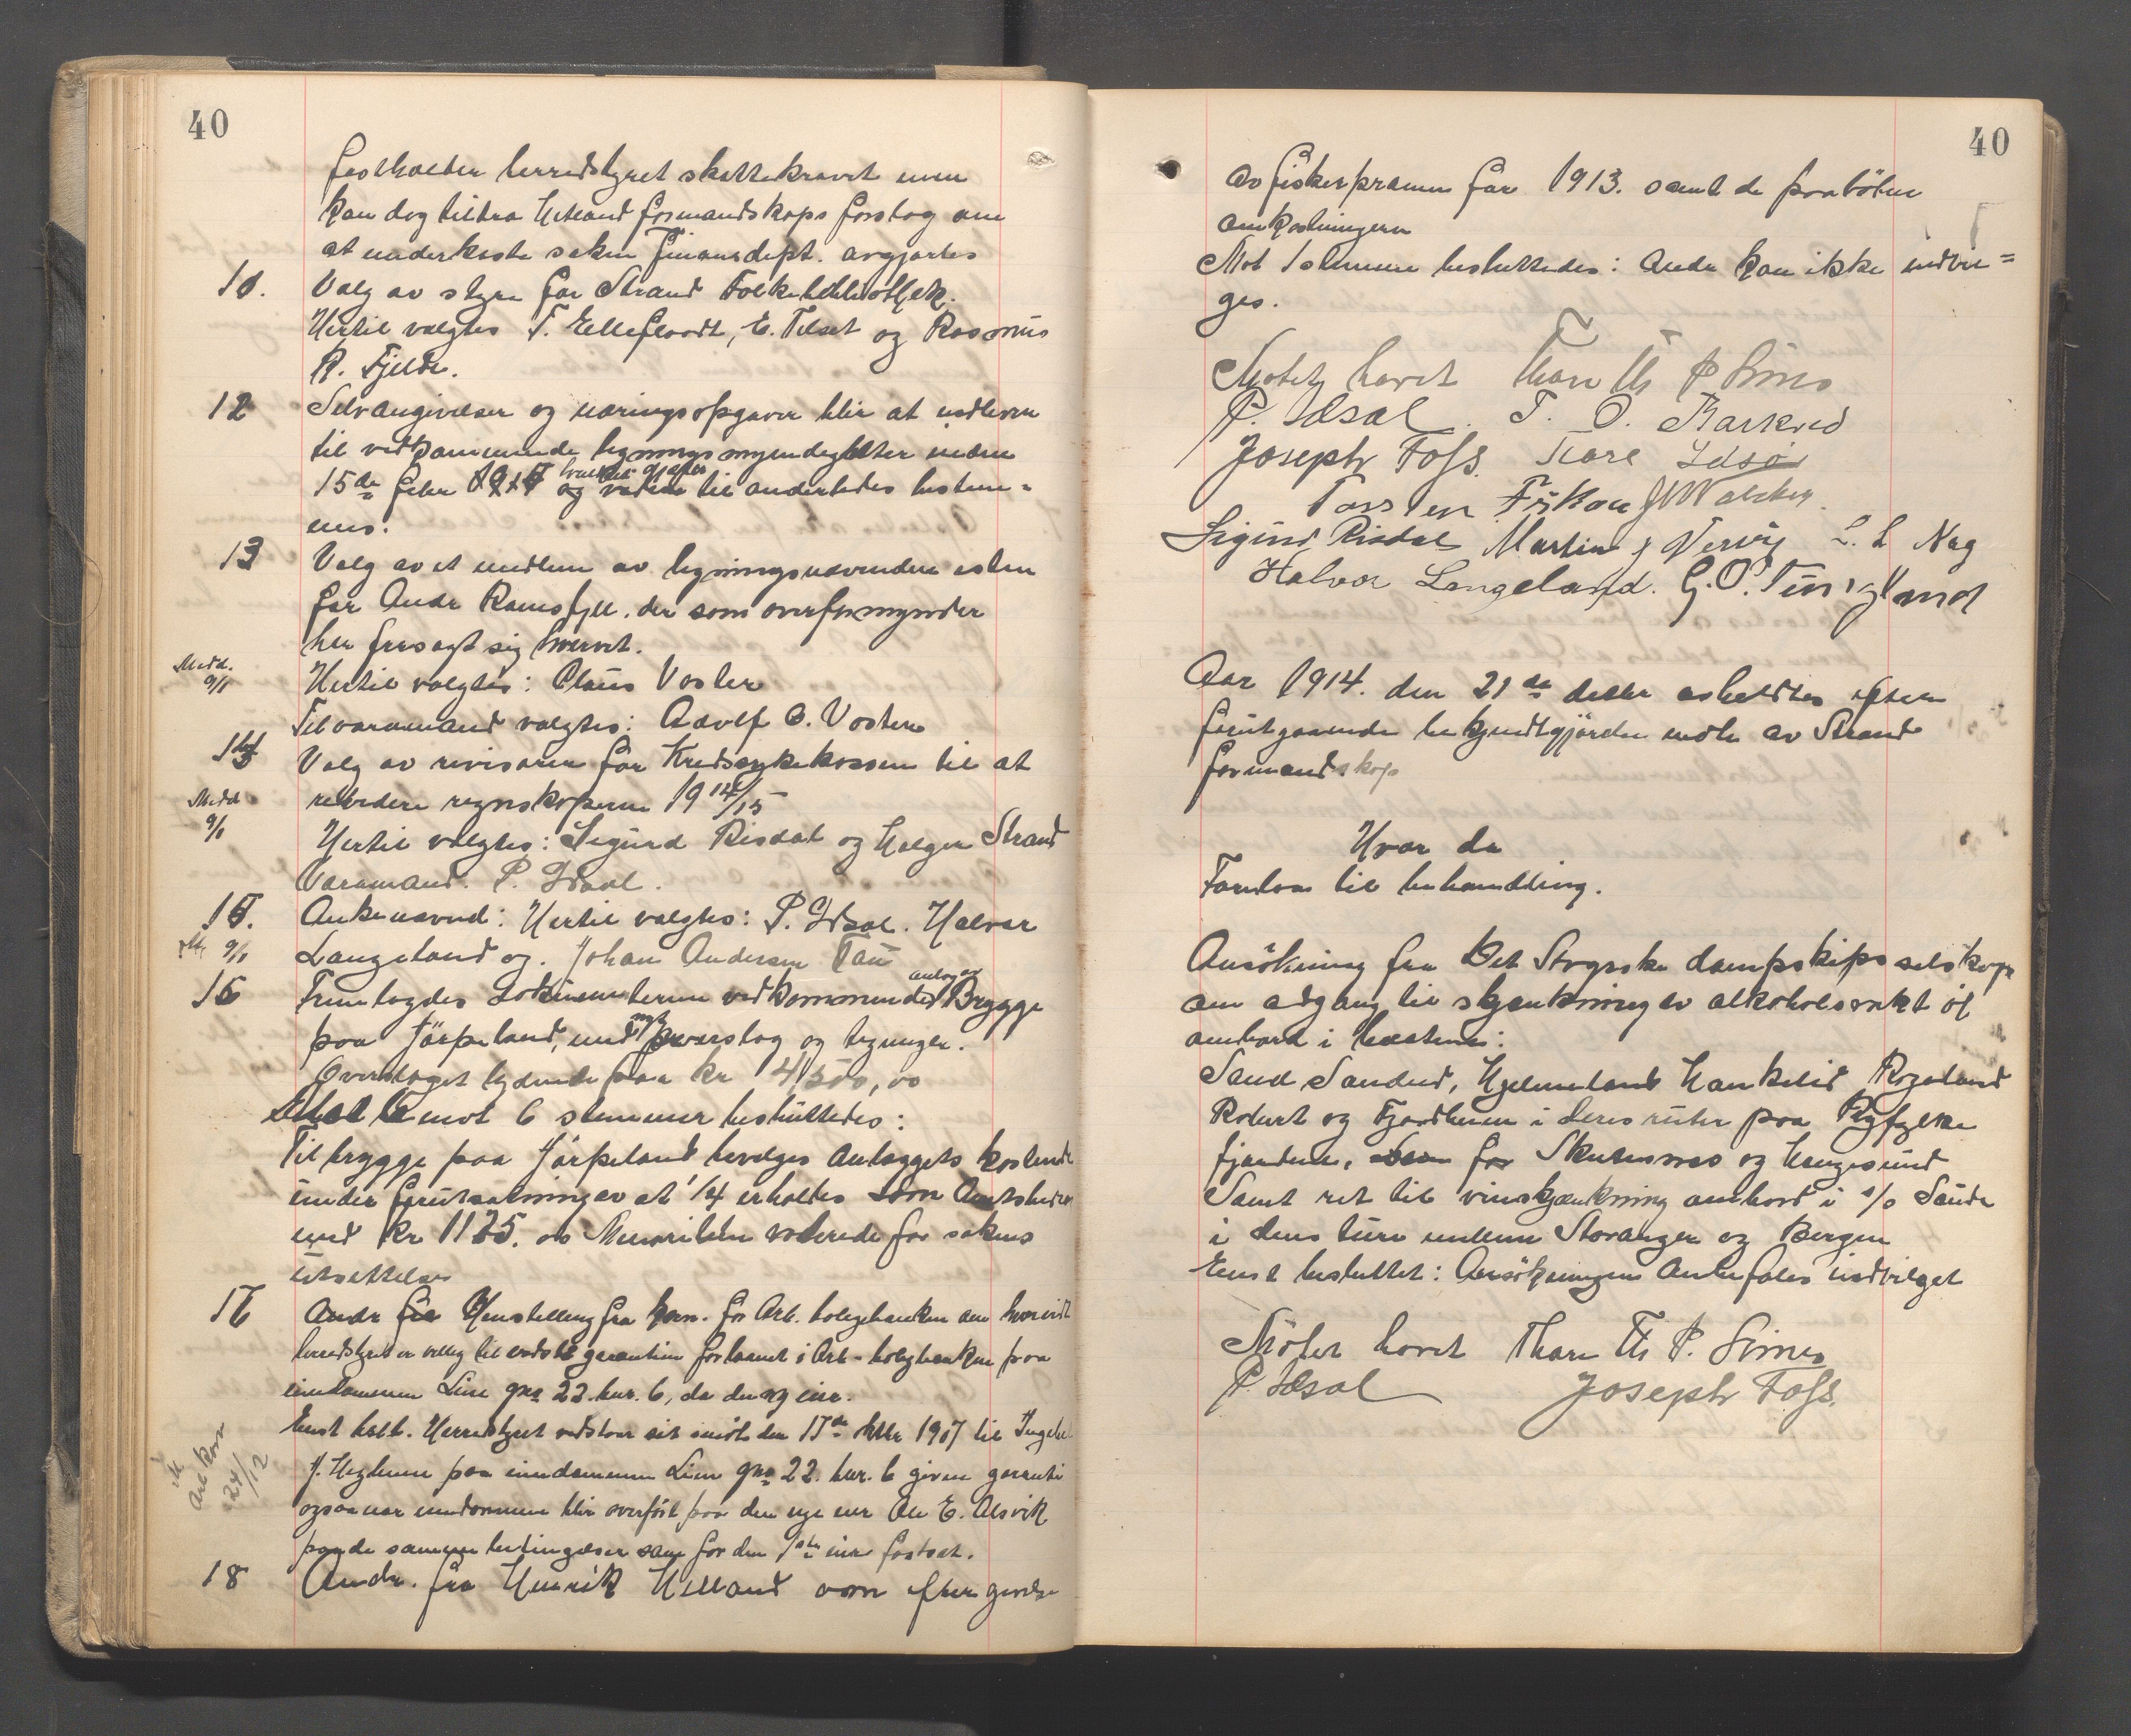 40
fastholder herredstyret skattekravet men
kan dog tiltræ Hetland formandskaps forslag om
at underkaste saken Finansdept. avgjørelse
10. Valg av styre for Strand Folkebibliothek.
Hertil valgtes T. Elleflaadt, E. Tilset og Rasmus
R. Fjelde.
12 Selvangivelser og næringsopgaver blir at indlevere
til vedkommende ligningsmyndigheter inden
15de febr og til anderledes bestem=
mes.
13 Valg av et medlem av ligningsnævnden efter
for Andr Ramsfjell, der som overformynder
har frasagt sig hvervet.
Medd. 9/1 Hertil valgtes: Claus Voster
Til varamand valgtes: Adolf C. Voster
14 Valg av revisorer for Kredssykekassen til at
Medd 9/1 revidere regnskaperne 1914/15
Hertil valgtes: Sigurd Risdal og Holger Strand
Varamand. P. Idsal.
15. Ankenævnd: Hertil valgtes: P. Idsal. Halvor
9/1 Langeland og. Johan Andersen Tau
16 Fremlagdes Dokumenterne vedkommende anlag av Brygge
paa Jørpeland, med overslag og tegninger.
Overslaget lydende paa kr 4500,00
mot 6 stemmer besluttedes:
Til brygge paa Jørpeland bevilges Anlæggets kostende
under forutsætning av at 1/4 erholdes som Amtsbidrag
med Kr 1125.00 Minoriteten voterede for sakens
utsættelse
17 Andr fra Henstilling fra kom. for Arb. boligbanken om hvorvidt
herredstyret er villig til vedstå garantien for laanet i Arb-boligbanken paa
eiendommen Lien gno 22. bnr. 6, da den ny eier.
Enst besl. Herredstyret vedstaar sit møte den 17de oktbr 1907 til Ingebr
H. Heglum paa eiendommen Lien gno 22. bnr. 6 given garanti
ogsaa naar eiendommen blir overført paa den nye eier Ole E. Alsvik
paa de samme betingelser som for den 1ste eier fastsat.
Arb kom
24/12
18 Andr. fra Henrik Helland om eftergivelse
40
av fiskerpræmien for 1913. samt de paaløbne
omkostninger
Mot 1 stemme besluttedes: Andr kan ikke indvil=
ges.
Møtet hævet Thore Th P Sines
P. Idsal. T. O. Barkved
Joseph Foss. Tore Idsøe
Torsten Fiskaa JWalcker.
Sigurd Risdal Martin J Nervig L. L Nag
Halvor Langeland. G. O. Tungland
Aar 1914. den 21de dettes avholdtes efter
forutgaaende bekjendtgjørelse møte av Strand
formandskap
Hvor da
Foretoes til behandling.
Ansøkning fra Det Stvgrske dampskipsselskap
om adgang til skjænkning av alkoholsvakt øl
ombord i baatene:
Sand, Sandeid, Hjelmeland Haukelid Rogaland
Robert og Fjordheim i deres ruter paa Ryfylke
fjordene, for Skudesnes og Haugesund
Samt ret til vinskjænkning ombord i s/s Sauda
i dens ture mellem Stavanger og Bergen
Enst besluttet: Ansøkningen Anbefales indvilget
Møtet hævet Thore Th P. Sines
P. Idsal Joseph Foss.